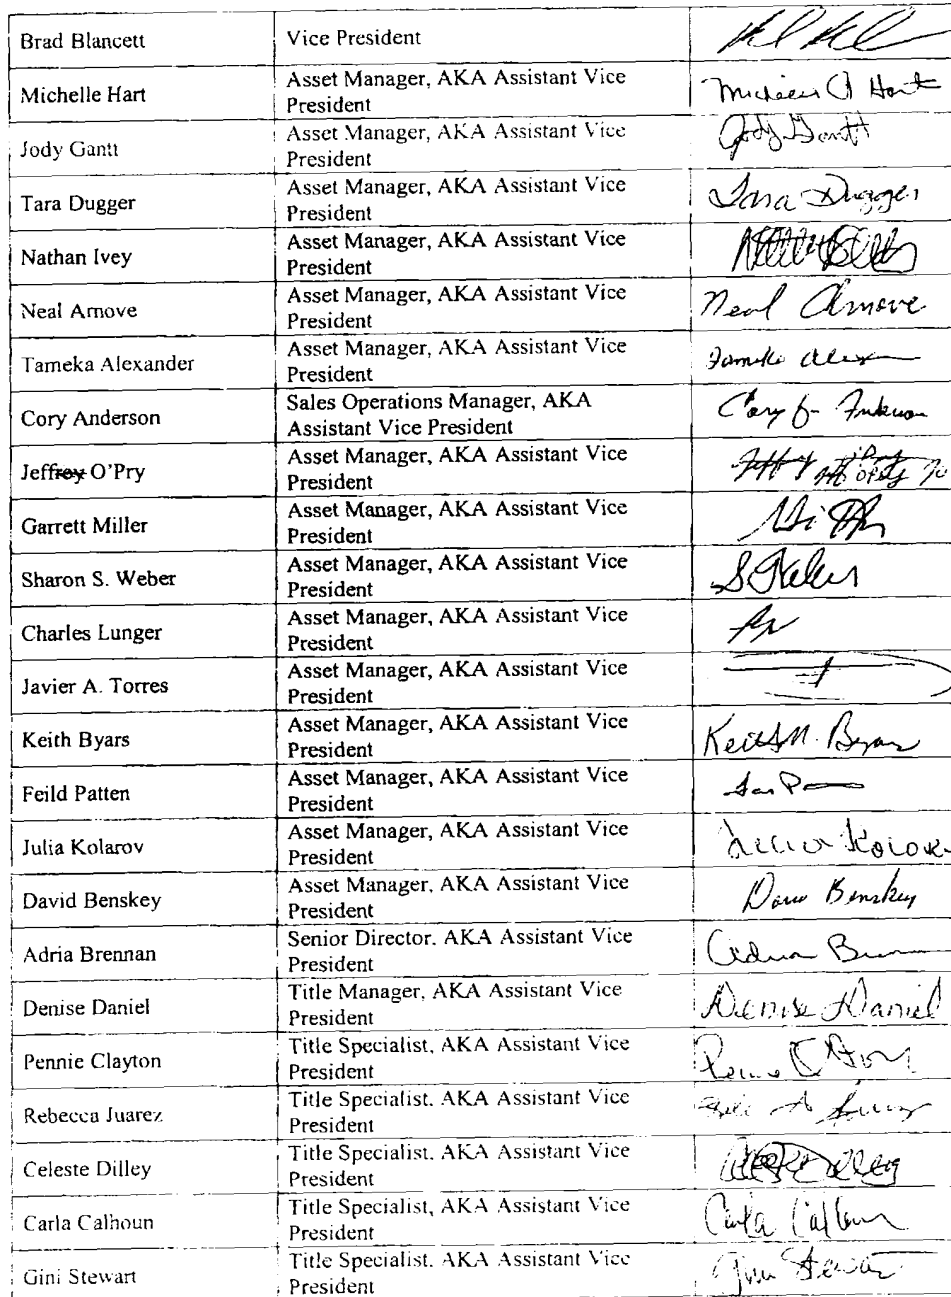 Brad Blancett Vice President
Michelle Hart Asset Manager, AKA Assistant Vice
President Hart
Jody Gantt Asset Manager, AKA Assistant Vice
President Jody Gantt
Tara Dugger Asset Manager, AKA Assistant Vice
President Tara Dugger
Nathan Ivey Asset Manager, AKA Assistant Vice
President
Neal Arnove Asset Manager, AKA Assistant Vice
President Neal Arnove
Tameka Alexander Asset Manager, AKA Assistant Vice
President
Cory Anderson Sales Operations Manager, AKA
Assistant Vice President Cory
Jeffrey O'Pry Asset Manager, AKA Assistant Vice
President
Garrett Miller Asset Manager, AKA Assistant Vice
President
Sharon S. Weber Asset Manager, AKA Assistant Vice
President
Charles Lunger Asset Manager, AKA Assistant Vice
President
Javier A. Torres Asset Manager, AKA Assistant Vice
President
Keith Byars Asset Manager, AKA Assistant Vice
President Keith M. Byars
Feild Patten Asset Manager, AKA Assistant Vice
President
Julia Kolarov Asset Manager, AKA Assistant Vice
President
David Benskey Asset Manager, AKA Assistant Vice
President Benskey
Adria Brennan Senior Director, AKA Assistant Vice
President
Denise Daniel Title Manager, AKA Assistant Vice
President Denise Daniel
Pennie Clayton Title Specialist, AKA Assistant Vice
President
Rebecca Juarez Title Specialist, AKA Assistant Vice
President
Celeste Dilley Title Specialist, AKA Assistant Vice
President
Carla Calhoun Title Specialist, AKA Assistant Vice
President Carla Calhoun
Gini Stewart Title Specialist, AKA Assistant Vice
President Gini Stewart